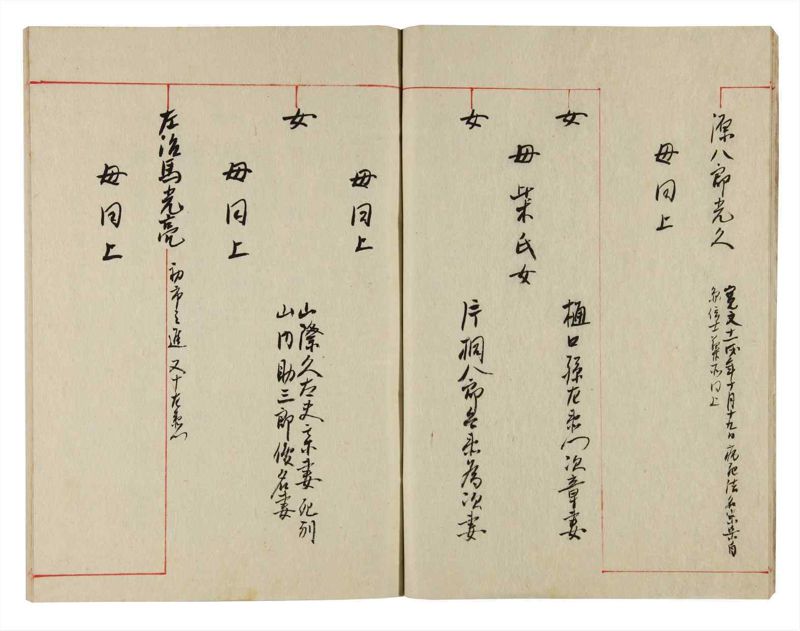 源八郎光久
寛文十一亥年十月十九日病死法名
信士葬所同上
母同上
女
樋口孫左衛門次章妻
母柴氏女
女
片桐八郎兵衛為次妻
母同上
女
山際久左夫
妻 死別
山内助三郎俊名妻
母同上
左治馬光亮
初市之進 又十左衛門
母同上